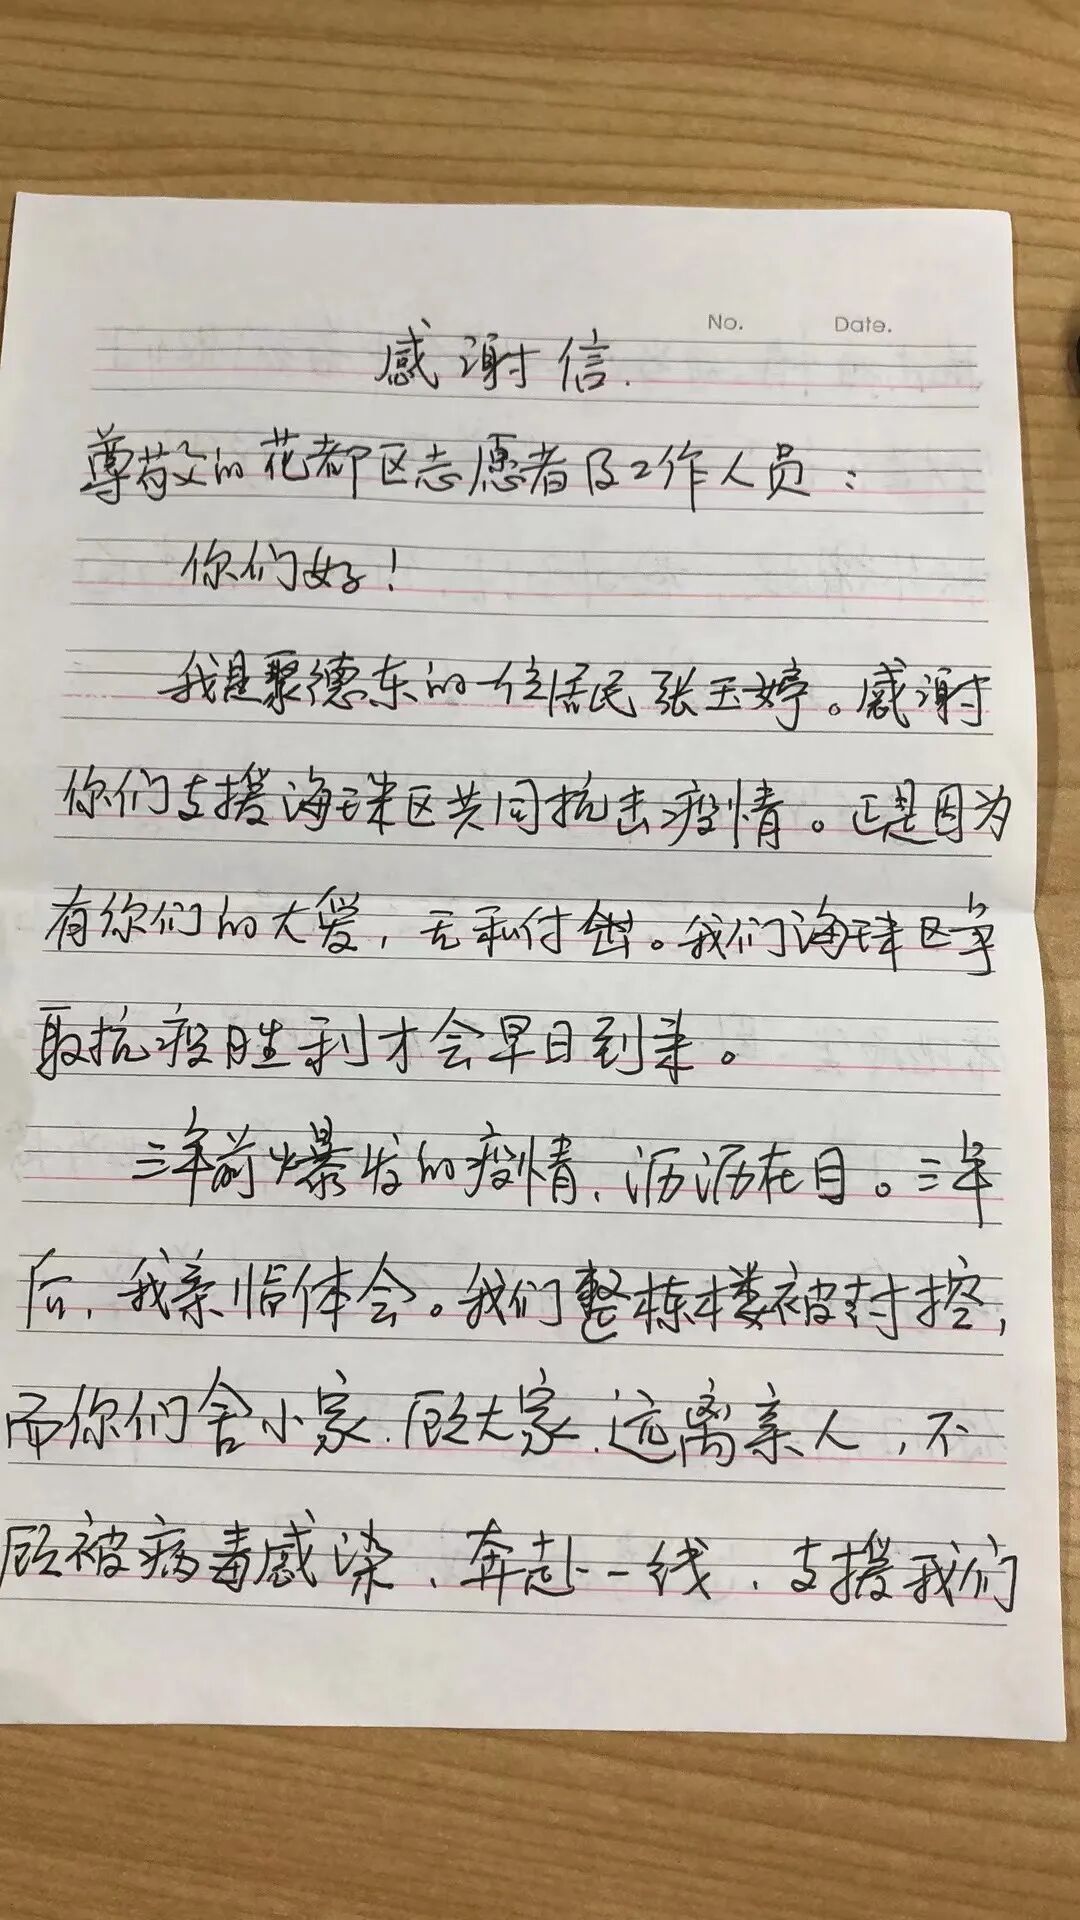 No. Date.
感谢信.
尊敬的花都区志愿者及工作人员：
你们好！
我是聚德东的一位居民张玉婷。感谢
你们支援海珠区共同抗击疫情。正是因为
有你们的大爱，无私付出。我们海珠区争
取抗疫胜利才会早日到来。
三年前爆发的疫情，沥沥在目。三年
后，我亲临体会。我们整栋楼被封控，
而你们舍小家、顾大家、远离亲人，不
顾被病毒感染、奔赴一线、支援我们